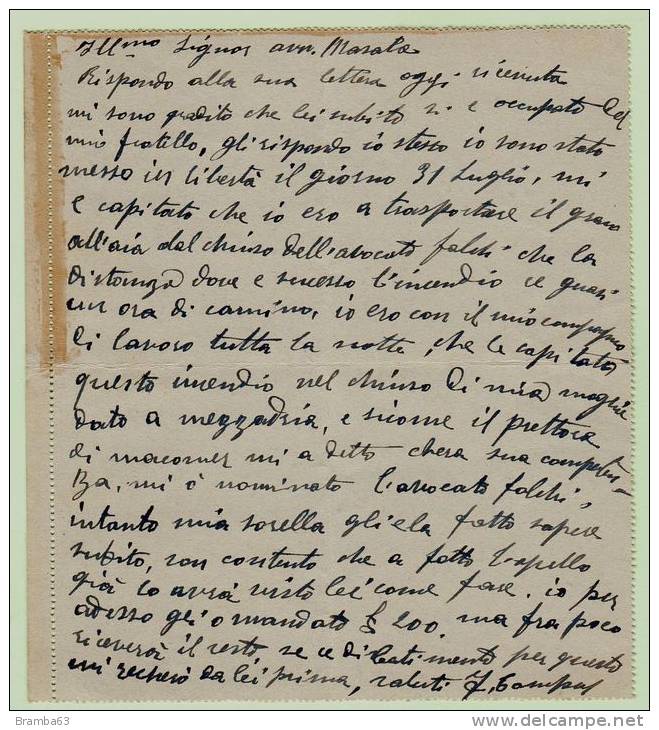 Ill.mo Signor avv. Masala
Rispondo alla sua lettera oggi ricevuta
mi sono gradito che lei subito si e occupato del
mio fratello, gli rispondo io stesso io sono stato
messo in libertà il giorno 31 Luglio, mi
e capitato che io ero a trasportare il grano
all'aia dal chiuso dell'avocato falchi che la
distanza dove e sucesso l'incendio ce quasi
un ora di camino, io ero con il mio compagno
di lavoro tutta la notte, che le capitato
questo incendio nel chiuso di mia moglie
dato a mezzadria, e sicome il prettore
di macomer mi a detto chera sua competen=
za, mi ò nominato l'avocato falchi,
intanto mia sorella gliela fatto sapere
subito, son contento che a fatto l'apello
già lo avrà visto lei come fare. io per
adesso gli o mandato £ 200. ma fra poco
riceverà il resto se ce dibatimento per questo
mi recherò da lei prima, saluti
Bramba63
www.delcampe.net